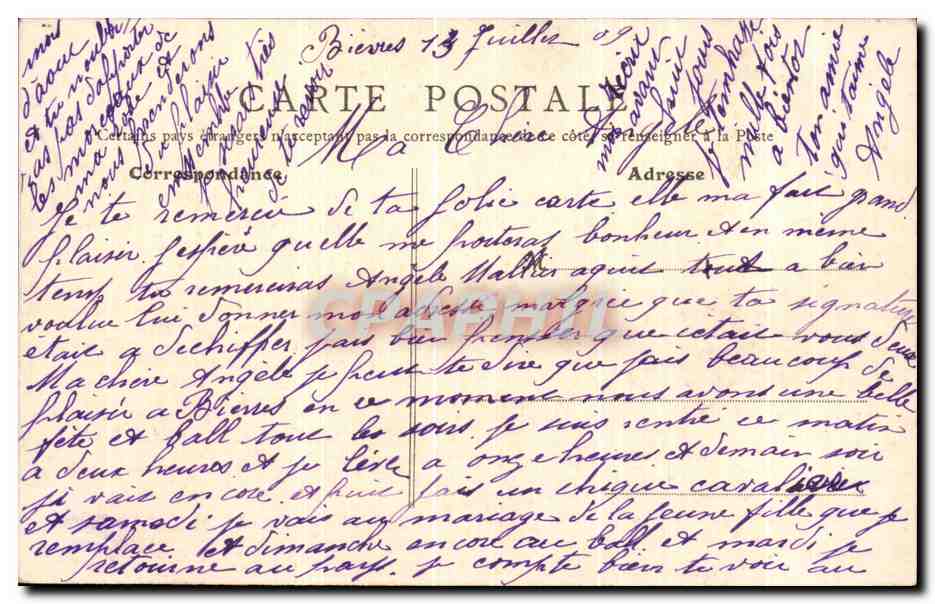 Bièvres 13 Juillet 09
CARTE POSTALE
Certains pays étrangers n'acceptant pas la correspondance de ce côté, se renseigner à la Poste
Ma Chère Angèle
Correspondance
Adresse
Je te remercie de ta Jolie carte elle ma fait grand
plaisir J'espère quelle me porteras bonheur et en même
temp tu remerciras Angèle a qui tout a bien
voulue lui donner mon adresse, malgrée que ta signature
était a dechiffrer, jais bien penser que cétait vous deux
Ma chère Angèle je peut te dire que jais beaucoup de
plaisir a Bièvres en ce moment nous avons une belle
fête et ball tout les soirs. je suis rentré ce matin
a deux heures et je lever a onze heures et demain soir
j'i vais encore et puit jais un chique cavalier
et samedi je vais au mariage de la jeune fille que je
remplace et dimanche encore au ball et mardi je
retourne au pays. je compte bien te voir au
mois
d'aout
et tu noublieras
pas d'apporter
les morceaux de
ma robe et
nous
demanderons
du plaisir
ensemble
pour
de te revoir
écrire
mavant
jembrasse
mille fois
a bientot
ton amie
qui taime
Angèle
CPAPHIL